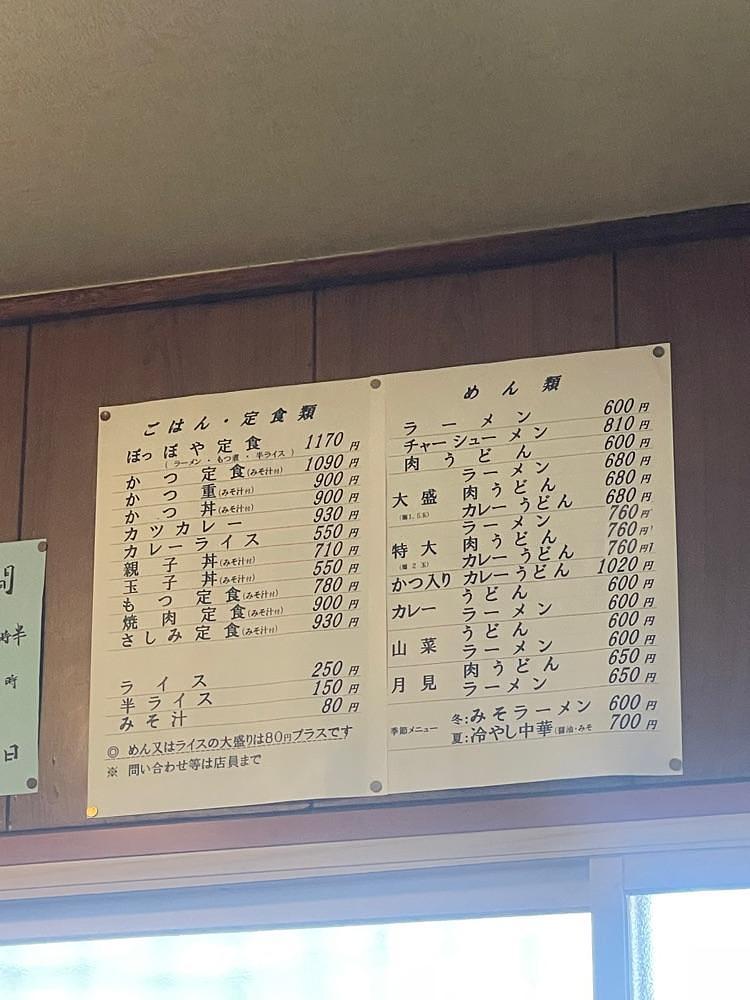 ごはん・定食類
ぽっぽや定食 1170円
(ラーメン・もつ煮・半ライス)
かつ定食(みそ汁付) 1090円
かつ重(みそ汁付) 900円
かつ丼(みそ汁付) 900円
カツカレー 930円
カレーライス 550円
親子丼(みそ汁付) 710円
玉子丼(みそ汁付) 550円
もつ定食(みそ汁付) 780円
焼肉定食(みそ汁付) 900円
さしみ定食(みそ汁付) 930円
ライス 250円
半ライス 150円
みそ汁 80円
◎ めん又はライスの大盛りは80円プラスです
※ 問い合わせ等は店員まで
めん類
ラーメン 600円
チャーシューメン 810円
肉うどん 600円
大盛 ラーメン 680円
(麺1.5玉) 肉うどん 680円
カレーうどん 680円
特大 ラーメン 760円
(麺2玉) 肉うどん 760円
カレーうどん 760円
かつ入り カレーうどん 1020円
カレー うどん 600円
ラーメン 600円
山菜 うどん 600円
ラーメン 600円
月見 肉うどん 650円
ラーメン 650円
季節メニュー 冬:みそラーメン 600円
夏:冷やし中華(醤油・みそ 700円
間
時半
時
日